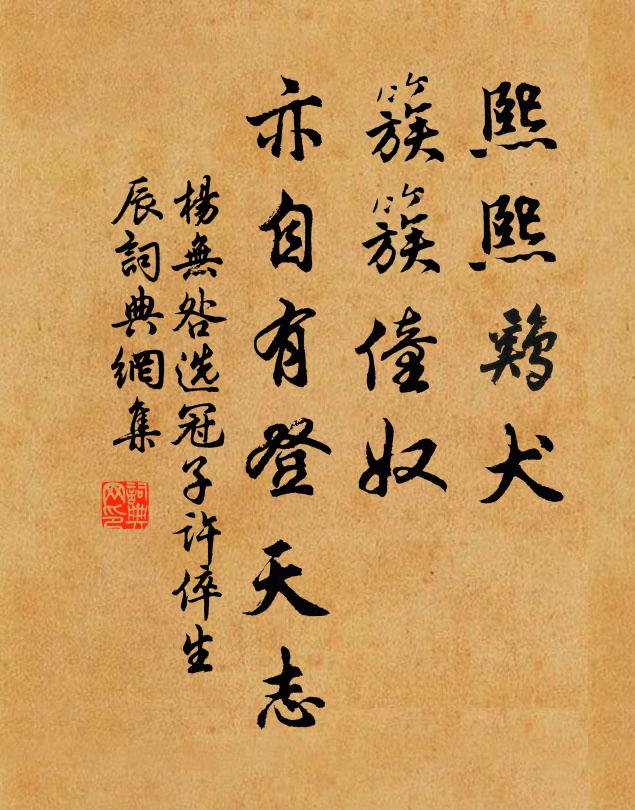 熙熙鷄犬
簇簇僮奴
亦自有登天志
楊無咎选冠子許倅生
辰詞典網集
詞典
网印